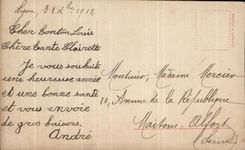 Lyon, 31 Xbre 1912
Cher Tonton Louis
Chère Tante Clairette
Je vous souhaite
une heureuse année
et une bonne santé
et vous envoie
de gros baisers.
André
Monsieur, Madame Mercier
10, Avenue de la République
Maisons-Alfort
(Seine)